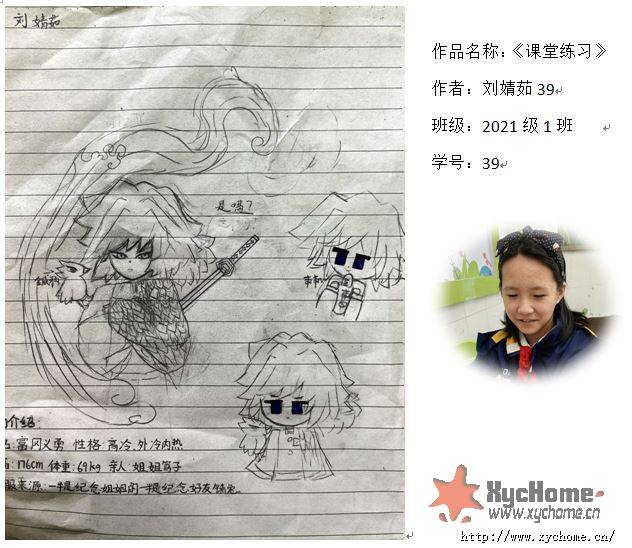 刘婧茹
是吗?
介绍:
富冈义勇 性格:高冷,外冷内热
176cm 体重:69kg 亲人:姐姐茑子
服来源:一半是纪念姐姐的一半是纪念好友锖兔
作品名称:《课堂练习》
作者:刘婧茹 39
班级:2021 级 1 班
学号:39
XycHome
www.xychome.cn
http://www.xychome.cn/